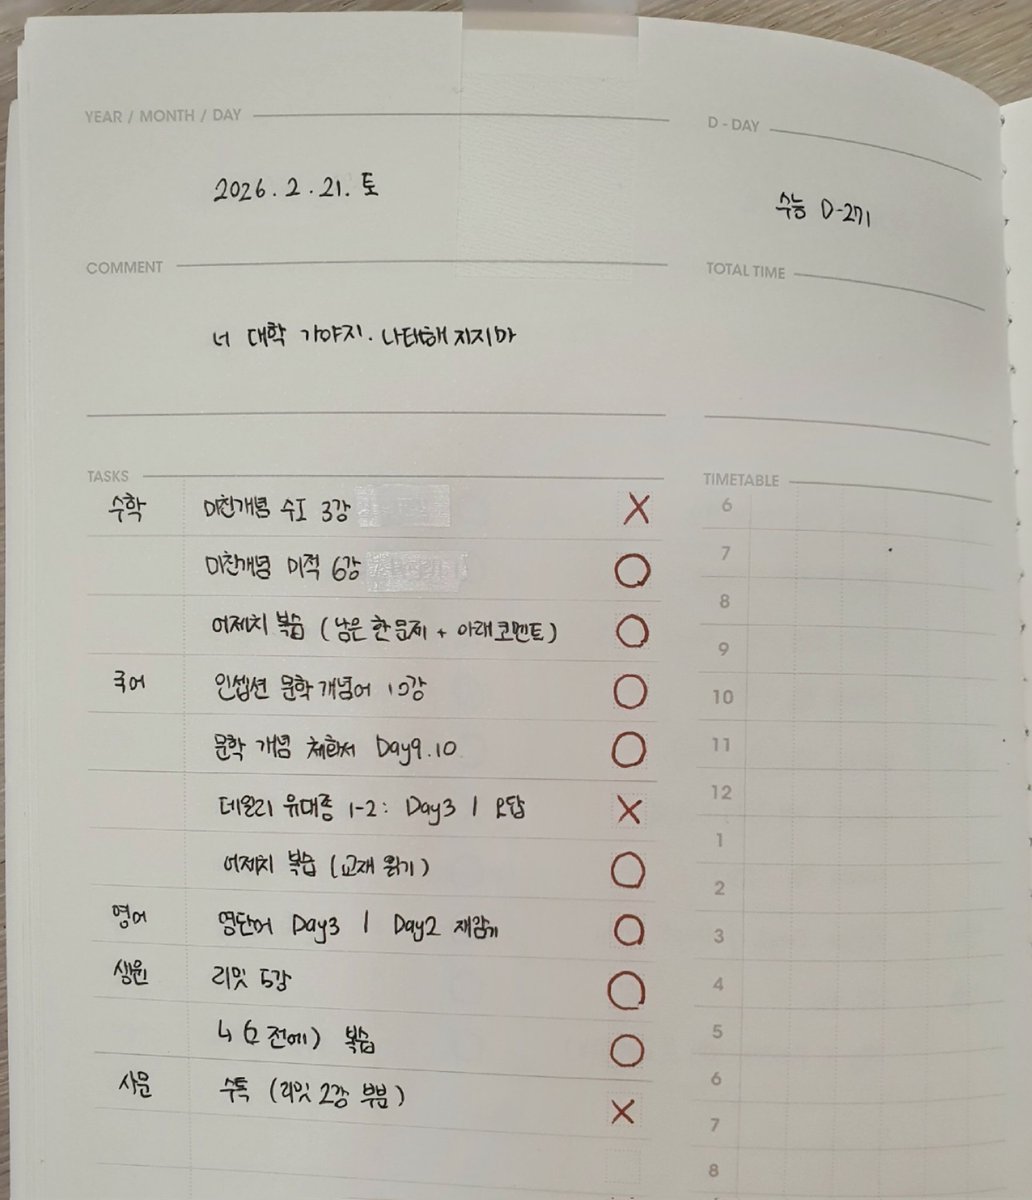 YEAR / MONTH / DAY
D - DAY
2026. 2. 21. 토
수능 D-271
COMMENT
TOTAL TIME
너 대학 가야지. 나태해지지마
TASKS
TIMETABLE
수학 미친개념 수I 3강 X
미친개념 미적 6강 O
어제치 복습 (남은 한 문제 + 아래 코멘트) O
국어 인셉션 문학 개념어 10강 O
문학 개념 체화서 Day9.10 O
데일리 유대종 1-2: Day3 / 오답 X
어제치 복습 (교재 읽기) O
영어 영단어 Day3 / Day2 재암기 O
생윤 리밋 5강 O
↳ (2 전에) 복습 O
사문 수특 (리밋 2강 부분) X
6
7
8
9
10
11
12
1
2
3
4
5
6
7
8